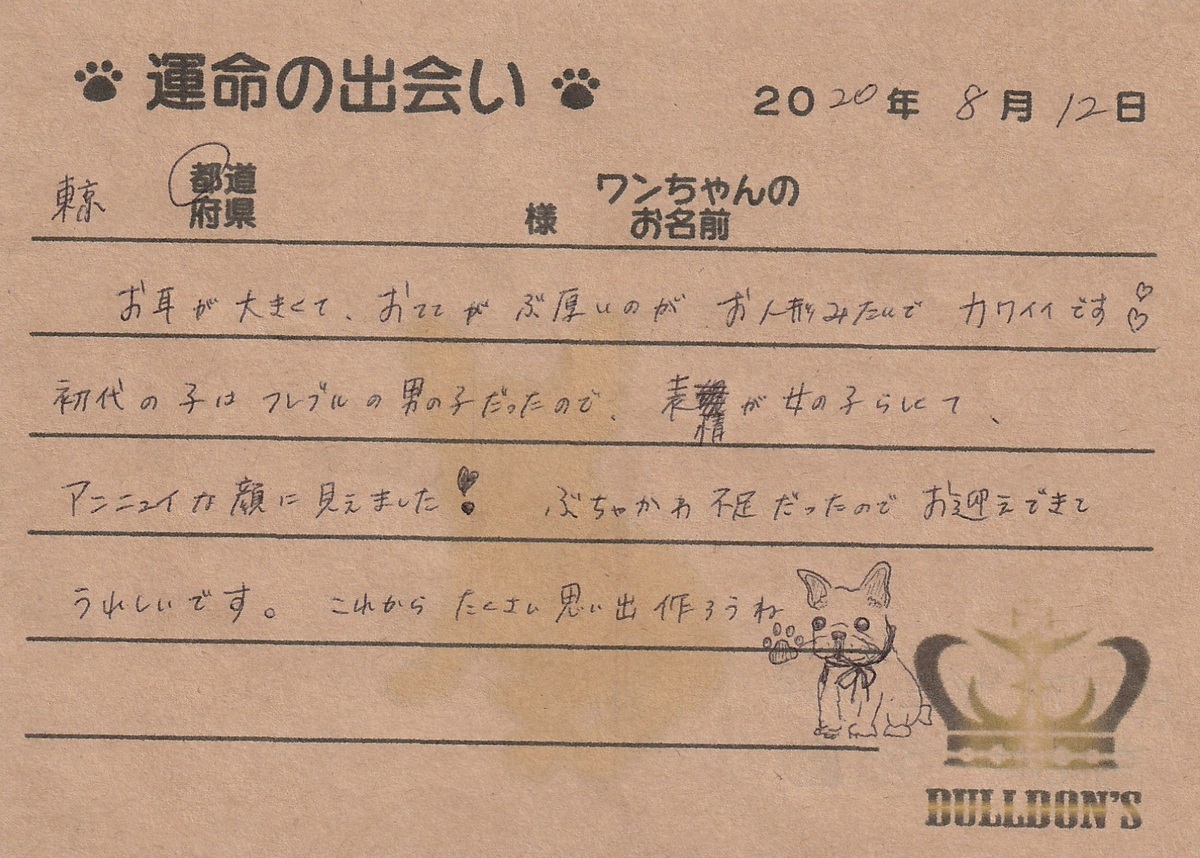 運命の出会い
2020年 8月 12日
東京 都道府県 様 ワンちゃんのお名前
お耳が大きくて、おててがぶ厚いのが お人形みたいで カワイイです
初代の子は フレブルの男の子だったので、表情が女の子らしくて、
アンニュイな顔に見えました! ぶちゃかわ不足だったので お迎えできて
うれしいです。 これから たくさん思い出作ろうね
BULLDON'S